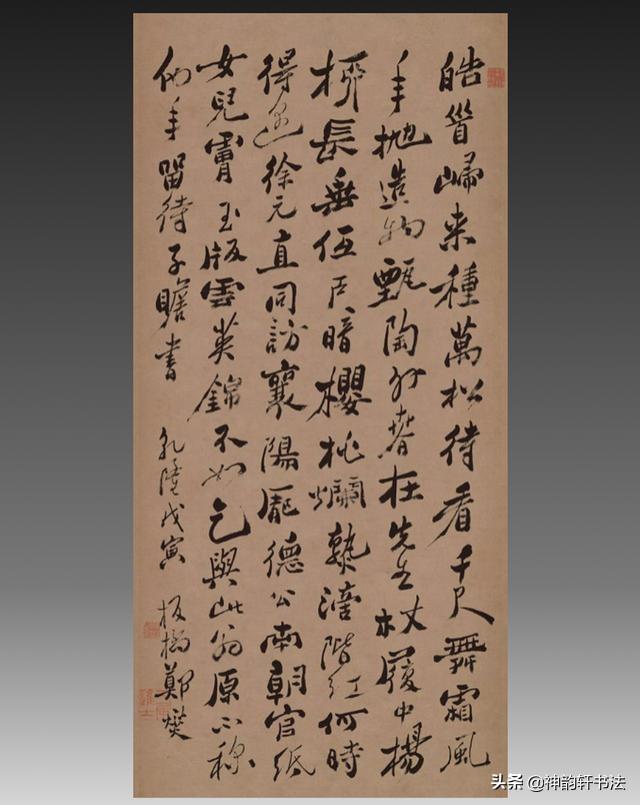 皓首歸来種萬松待看千尺舞霜風
年抛造物甄陶外春在先生杖屨中楊
柳長垂低戶暗櫻桃爛熟滴階紅何時
得徐元直同訪襄陽龐德公南朝官紙
女兒膚玉版雲英錦不如乞與此翁原不稱
他年留待子瞻書 乾隆戊寅 板橋鄭燮
头条 @神韵轩书法